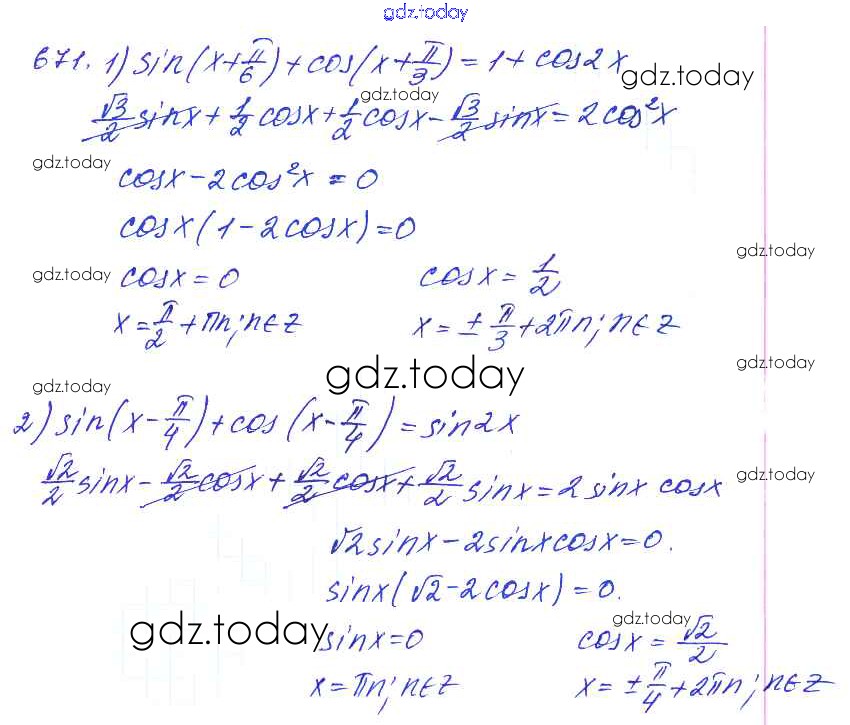 gdz.today
671. 1) sin(x+π/6)+cos(x+π/3)=1+cos2x
gdz.today
gdz.today
√3/2 sinx+1/2 cosx+1/2 cosx-√3/2 sinx=2cos²x
gdz.today
cosx-2cos²x=0
cosx(1-2cosx)=0
gdz.today
gdz.today
cosx=0 cosx=1/2
x=π/2+πn; n∈Z x=±π/3+2πn; n∈Z
gdz.today
gdz.today
gdz.today
2) sin(x-π/4)+cos(x-π/4)=sin2x
gdz.today
√2/2 sinx-√2/2 cosx+√2/2 cosx+√2/2 sinx=2sinx cosx
√2sinx-2sinxcosx=0.
sinx(√2-2cosx)=0.
gdz.today
gdz.today
sinx=0 cosx=√2/2
x=πn; n∈Z x=±π/4+2πn; n∈Z